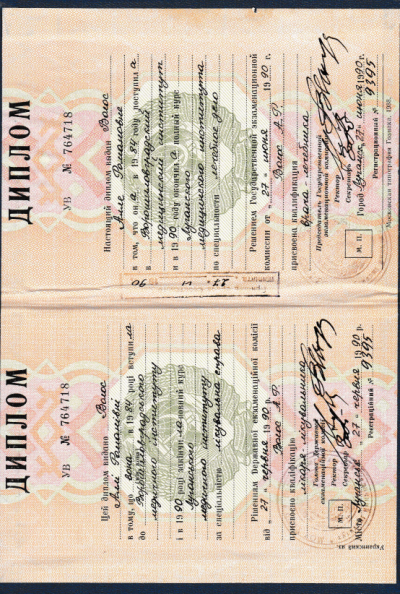 ДИПЛОМ
УВ № 764718
Цей диплом видано Волос
Аллі Романівні
в тому, що вона в 1984 році вступила
до Ворошиловградського
медичного інституту
і в 1990 році закінчила повний курс
Луганського
медичного інституту
за спеціальністю лікувальна справа
Рішенням Державної екзаменаційної комісії
від „27“ червня 1990 р.
Волос А.Р.
присвоєно кваліфікацію
лікаря-лікувальника
Голова Державної
екзаменаційної комісії
Ректор
Секретар
М. П.
Місто Луганськ 27 червня 1990 р.
Реєстраційний № 9395
Украинский яз.
ДИПЛОМ
УВ № 764718
Настоящий диплом выдан Волос
Алле Романовне
в том, что она в 1984 году поступила
в Ворошиловградский
медицинский институт
и в 1990 году окончила полный курс
Луганского
медицинского института
по специальности лечебное дело
Решением Государственной экзаменационной
комиссии от „27“ июня 1990 г.
Волос А.Р.
присвоена квалификация
врача-лечебника
Председатель Государственной
экзаменационной комиссии
Ректор
Секретарь
М. П.
Город Луганск 27 июня 1990 г.
Регистрационный № 9395
Московская типография Гознака. 1989.
27. VI
90